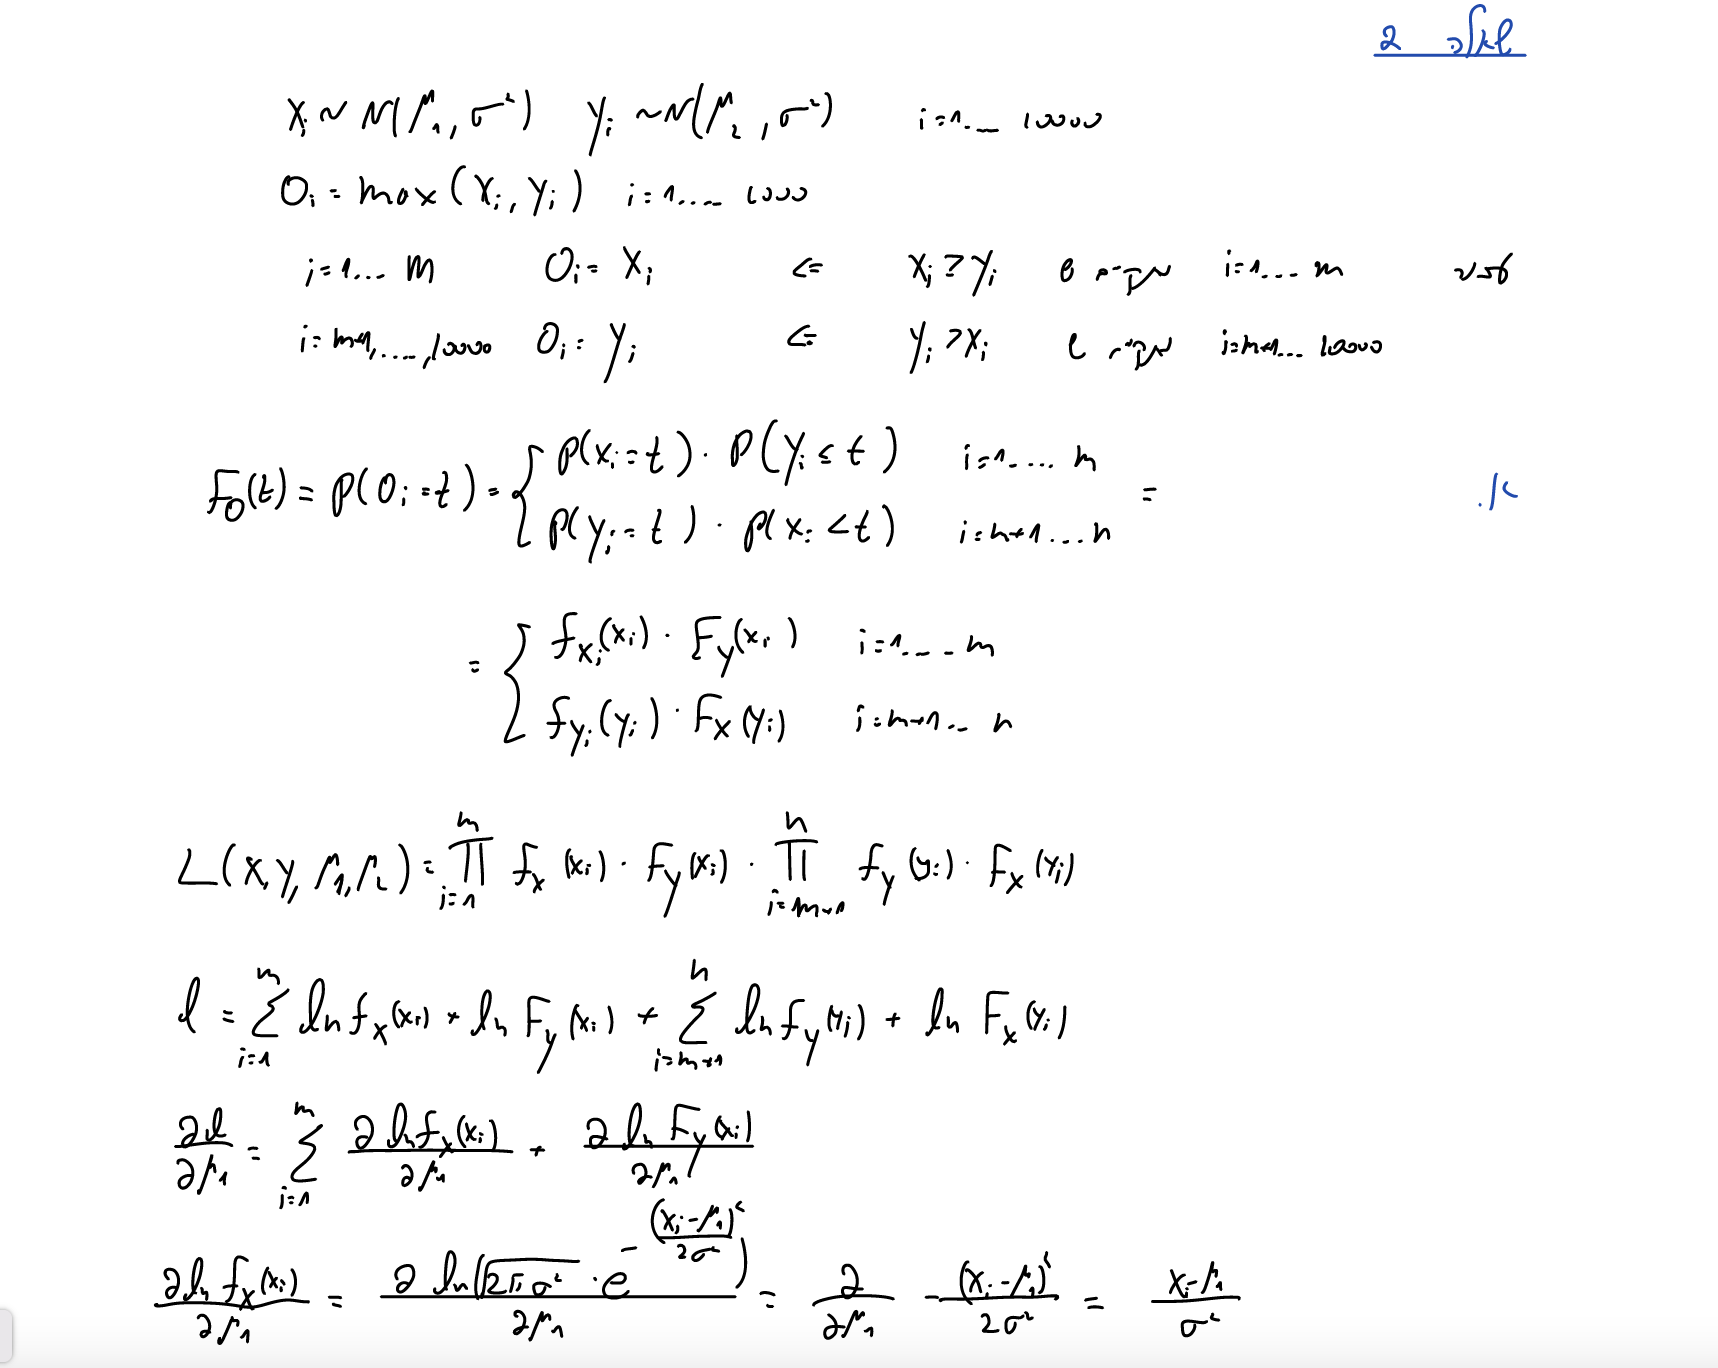 שאלה 2
X_i ~ N(μ_1, σ²)   Y_i ~ N(μ_2, σ²)   i=1... 10000
O_i = max(X_i, Y_i)   i=1.... 1000
i=1... m   O_i = X_i   <=   X_i > Y_i   i=1... m
i=m+1,....,10000   O_i = Y_i   <=   Y_i > X_i   i=m+1... 10000
א.
F_O(t) = P(O_i = t) = { P(X_i = t) · P(Y_i ≤ t)   i=1.... m
P(Y_i = t) · P(X_i < t)   i=n+1...n   =
= { f_{X_i}(x_i) · F_Y(x_i)   i=1... m
f_{Y_i}(y_i) · F_X(y_i)   i=m+1.. n
L(X,Y, μ_1, μ_2) = ∏_{i=1}^{m} f_X(x_i) · F_Y(x_i) · ∏_{i=m+1}^{n} f_Y(y_i) · F_X(y_i)
l = Σ_{i=1}^{m} ln f_X(x_i) + ln F_Y(x_i) + Σ_{i=m+1}^{n} ln f_Y(y_i) + ln F_X(y_i)
∂l/∂μ_1 = Σ_{i=1}^{m} ∂ ln f_X(x_i)/∂μ_1 + ∂ ln F_Y(x_i)/∂μ_1
∂ ln f_X(x_i)/∂μ_1 = ∂ ln(√(2πσ²) · e^{-(x_i-μ_1)²/2σ²})/∂μ_1 = ∂/∂μ_1 -(x_i-μ_1)²/2σ² = (x_i-μ_1)/σ²